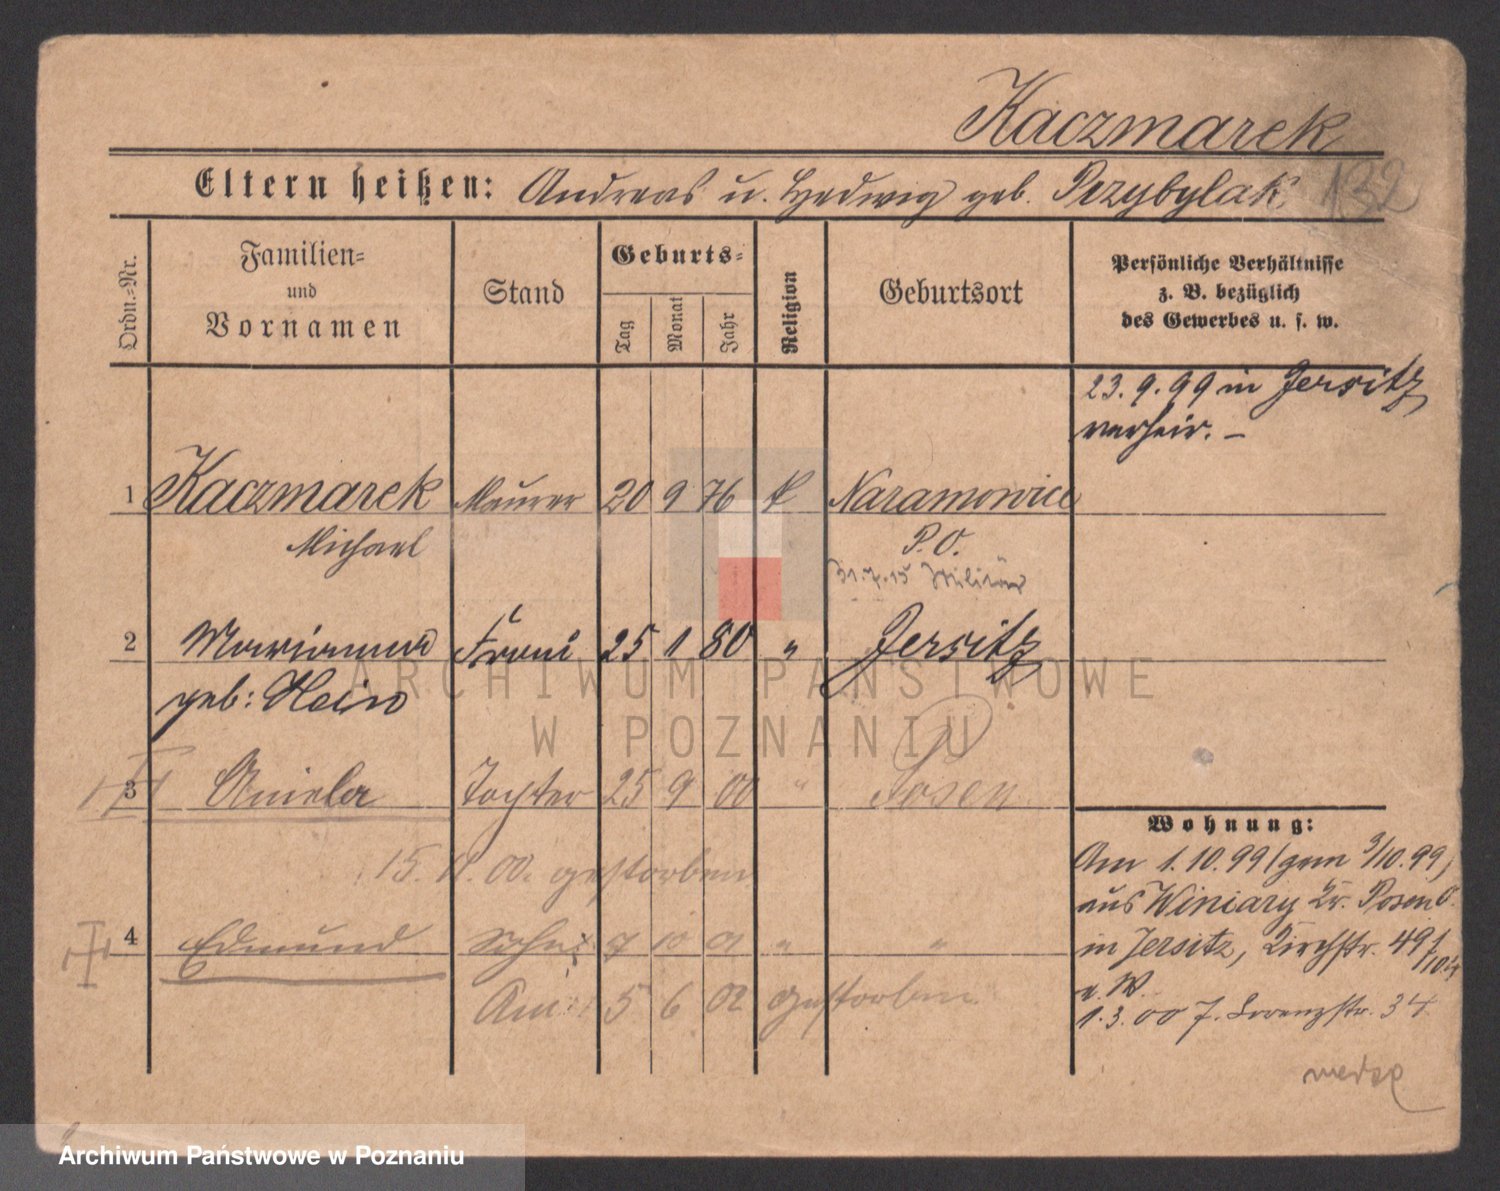 Kaczmarek
Eltern heißen: Andreas u. Hedwig geb. Przybylak
132
Ordn.-Nr.
Familien-
und
Vornamen
Stand
Geburts-
Tag
Monat
Jahr
Religion
Geburtsort
Persönliche Verhältnisse
z. B. bezüglich
des Gewerbes u. s. w.
23.9.99 in Jersitz
verheir. –
1 Kaczmarek Maurer 20 9 76 k Naramowice
Michael P. O.
31.7.15 Militär
2 Marianna Frau 25 1 80 " Jersitz
geb: Hein
3 Aniela Tochter 25 9 00 " Posen
15. 11. 00. gestorben
4 Edmund Sohn 7 10 01 " "
Am 5 6 02 gestorben
Wohnung:
Am 1.10.99 (gem 3/10.99)
aus Winiary Kr. Posen O.
in Jersitz, Kirchstr. 49
v. W.
1.3.00 Lorenzstr. 34
ARCHIWUM PAŃSTWOWE
W POZNANIU
Archiwum Państwowe w Poznaniu